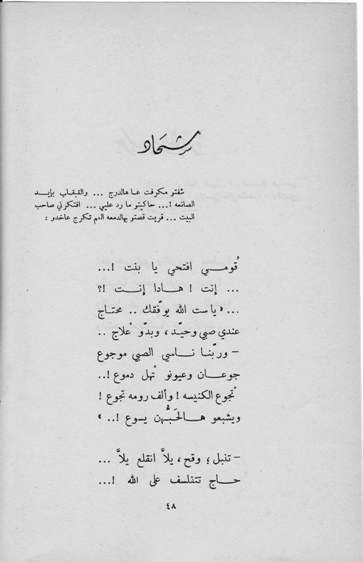 شحاد
شفتو مكرفت عا هالدرج ... والقبقاب بإيد
الصانعه !... حاكيتو ما رد عليي ... افتكرني صاحب
البيت ... قريت قصتو بهالدمعه اللي تكرج عاخدو :
قومي افتحي يا بنت !...
... إنت ! هادا إنت !؟
... « يا ست الله يوفقك .. محتاج
عندي صبي وحيد ، وبدو علاج ..
– وربنا ناسي الصبي موجوع
جوعان وعيونو تهل دموع !..
تجوع الكنيسه ! وألف رومه تجوع !
ويشبعو هالحبهن يسوع !.. »
– تنبل ، وقح ، يلا انقلع يلا ...
حاج تتفلسف على الله !...
٤٨